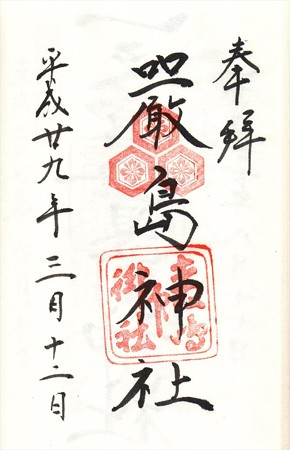 奉拝
嚴島神社
平成廿九年三月十二日